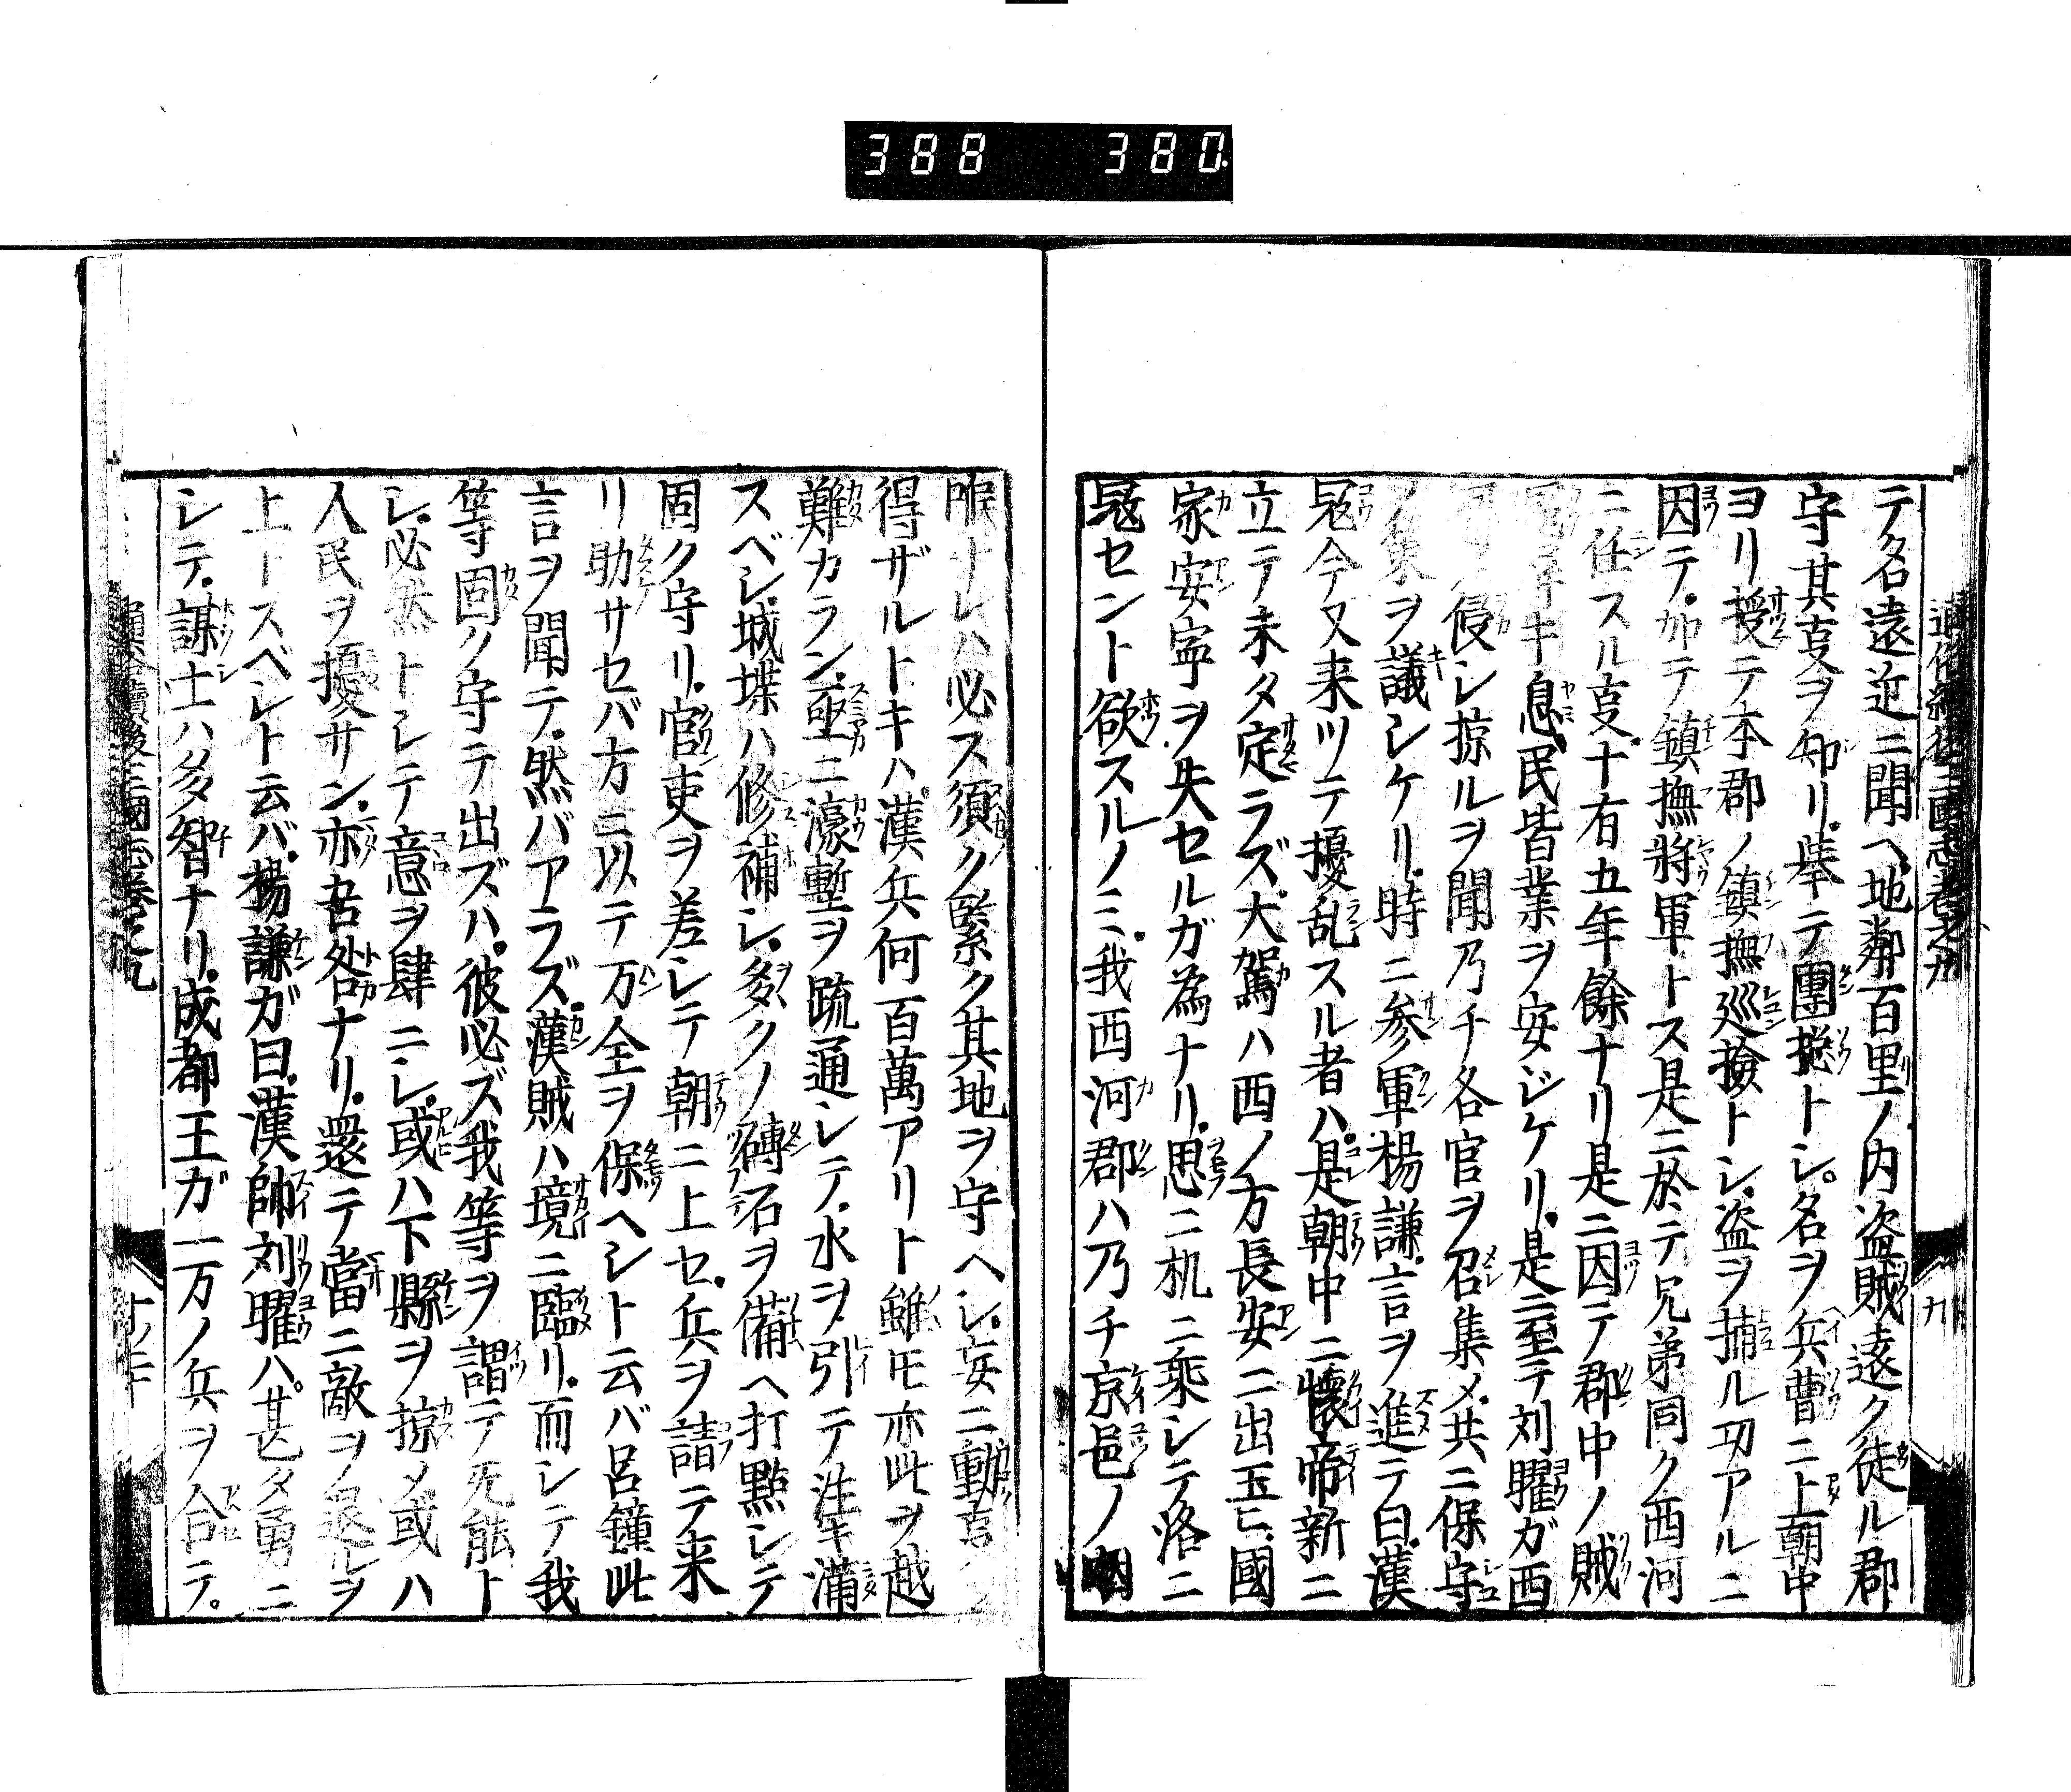 388 380
テ名遠近ニ聞ヘ地鄰百里ノ内盗賊遠ク徒ル郡
守其㕝ヲ知リ舉テ團揔トシ名ヲ兵曹ニ上朝中
ヨリ授テ本郡ノ鎮撫巡撿トシ盗ヲ捕ル功アルニ
因テ加テ鎮撫將軍トス是ニ於テ兄弟同ク西河
ニ任スル㕝十有五年餘ナリ是ニ因テ郡中ノ賊
息民皆業ヲ安ジケリ是ニ至テ刘曜ガ西
侵シ掠ルヲ聞乃チ各官ヲ召集メ共ニ保守
ノ策ヲ議シケリ時ニ参軍楊謙言ヲ進テ曰漢
冦今又来ツテ擾乱スル者ハ是朝中ニ懷帝新ニ
立テ未タ定ラズ大駕ハ西ノ方長安ニ出玉ヒ國
家安寧ヲ失セルガ為ナリ思ニ机ニ乘シテ洛ニ
冦セント欲スルノミ我西河郡ハ乃チ京邑ノ咽
喉ナレハ必ス須ク緊ク其地ヲ守ヘシ妄ニ動
得ザルトキハ漢兵何百萬アリト雖モ亦此ヲ越
難カラン亟ニ濠塹ヲ疏通シテ水ヲ引テ注キ滿
スベシ城堞ハ修補シ多クノ磚石ヲ備ヘ打點シテ
固ク守リ官吏ヲ差シテ朝ニ上セ兵ヲ請テ来
リ助サセバ方ニ以テ万全ヲ保ヘシト云バ呂鐘此
言ヲ聞テ然バアラズ漢賊ハ境ニ臨リ而シテ我
等固ク守テ出ズハ彼必ズ我等ヲ謂テ旡能ト
シ必然トシテ意ヲ肆ニシ或ハ下縣ヲ掠メ或ハ
人民ヲ擾サン亦吾咎ナリ還テ當ニ敵ヲ退ルヲ
上トスベシト云バ楊謙ガ曰漢帥刘曜ハ甚タ勇ニ
シテ謀士ハ多智ナリ成都王ガ一万ノ兵ヲ合テ